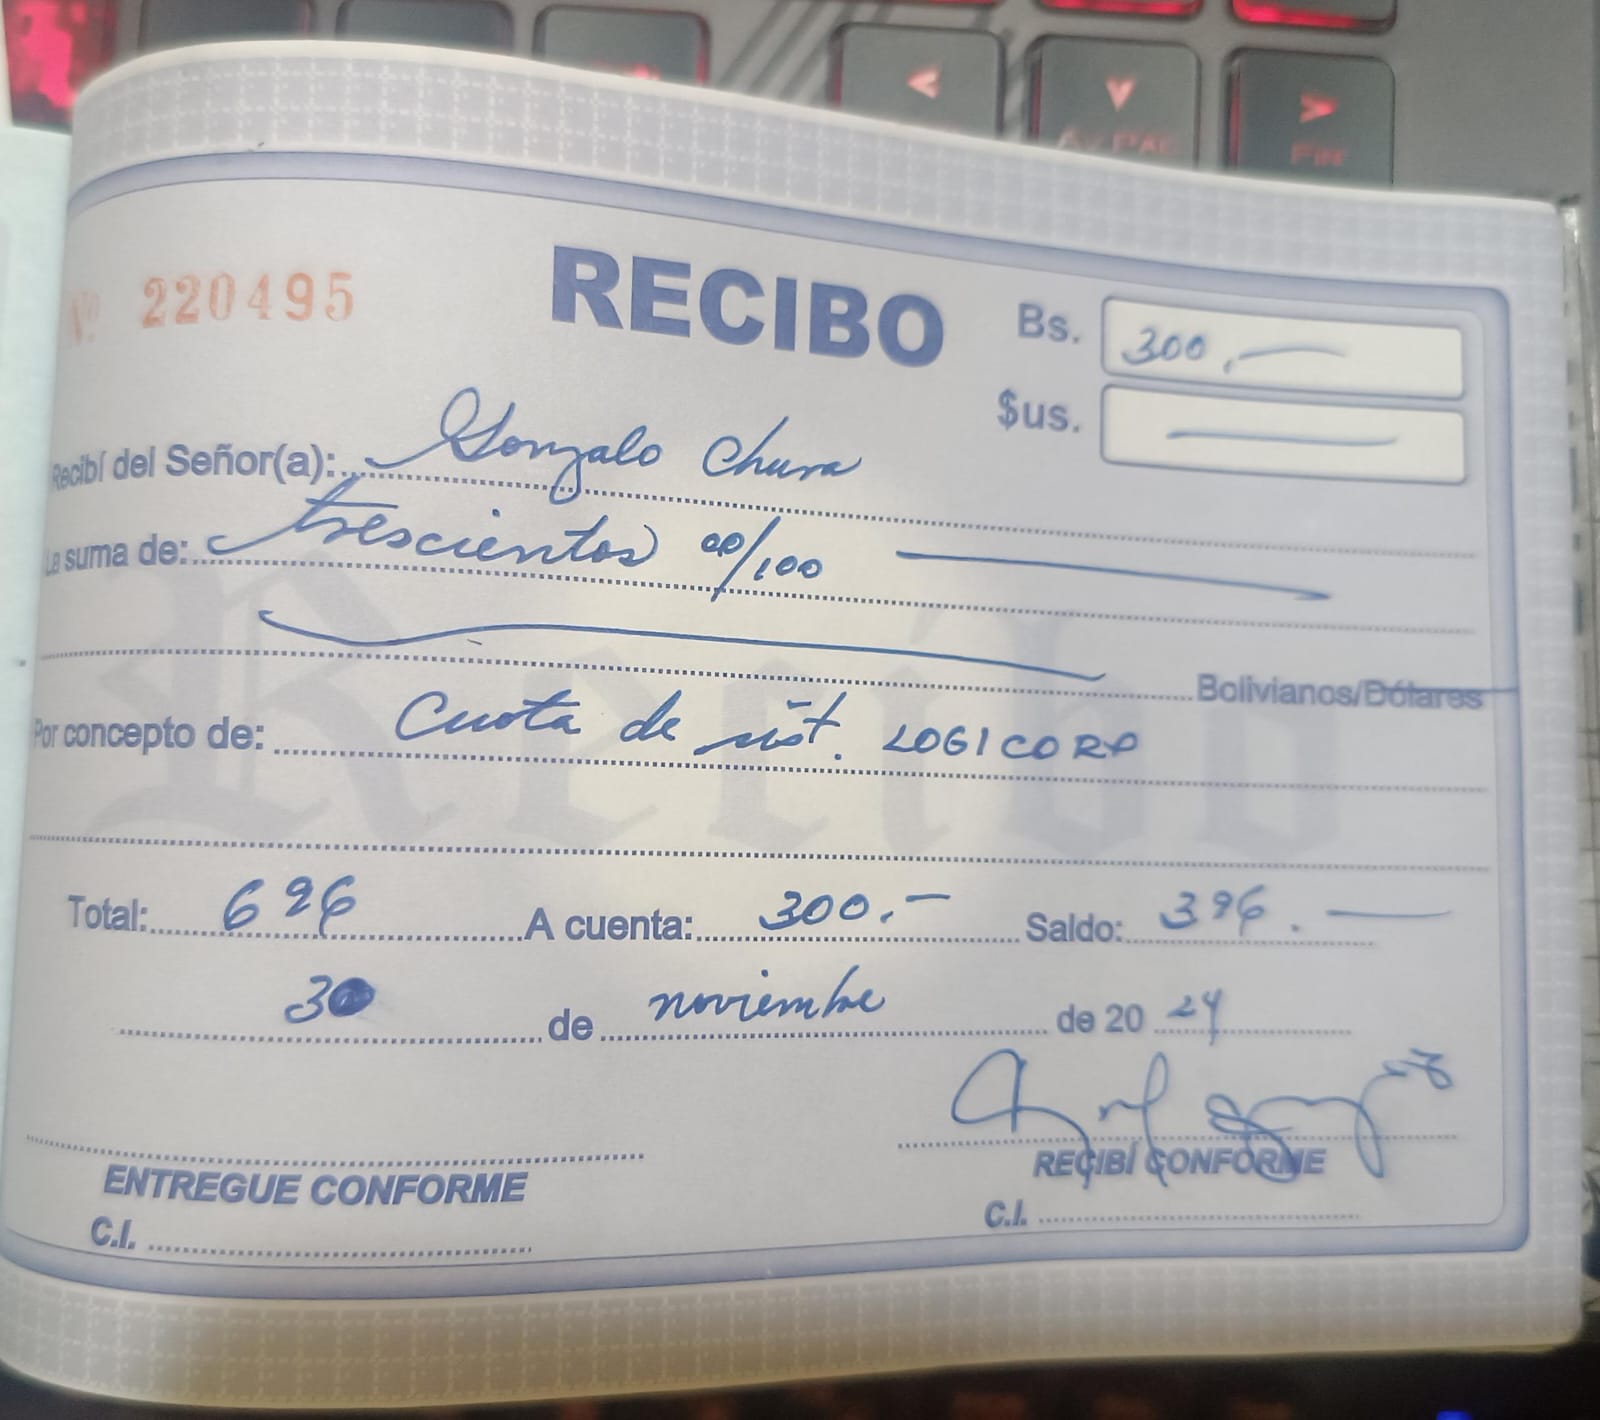 Nº 220495
RECIBO
Bs. 300,—
$us. —
Recibí del Señor(a): Gonzalo Chura
La suma de: trescientos 00/100
Bolivianos/Dólares
Por concepto de: Cuota de sist. LOGICORP
Total: 696 A cuenta: 300.- Saldo: 396.—
30 de noviembre de 2024
ENTREGUE CONFORME
C.I.
RECIBÍ CONFORME
C.I.
Recibo
AV PAG
FIN